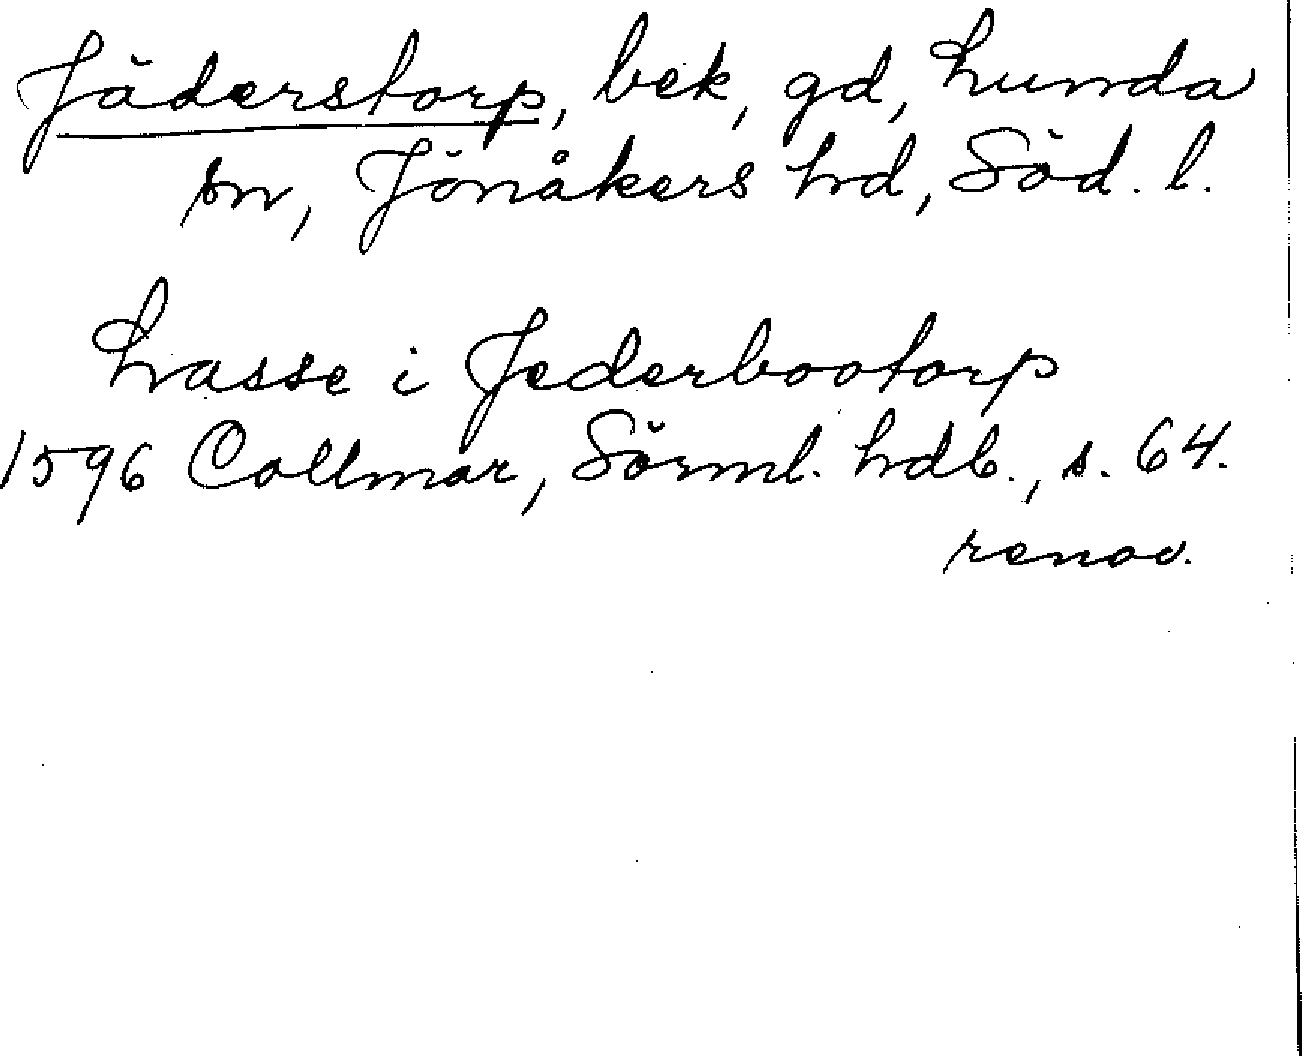 Jäderstorp, bek, gd, Lunda
sn, Jönåkers hd, Söd. l.
Lasse i Jederbootorp
1596 Collmar, Sörml. hdb., s. 64.
renov.